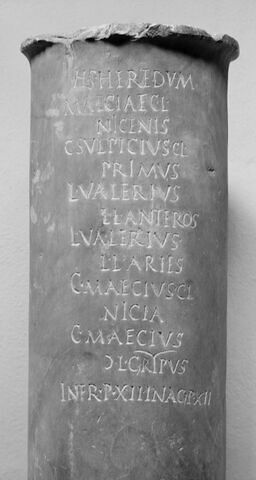 H·S·HEREDVM
MAECIAE C L
NICENIS
C SVLPICIVS C L
PRIMVS
L VALERIVS
L L ANTEROS
L VALERIVS
L L ARIES
C·MAECIVS C L
NICIA
C·MAECIVS
Ɔ L GRYPVS
IN FR·P·XIII IN AGR P XII